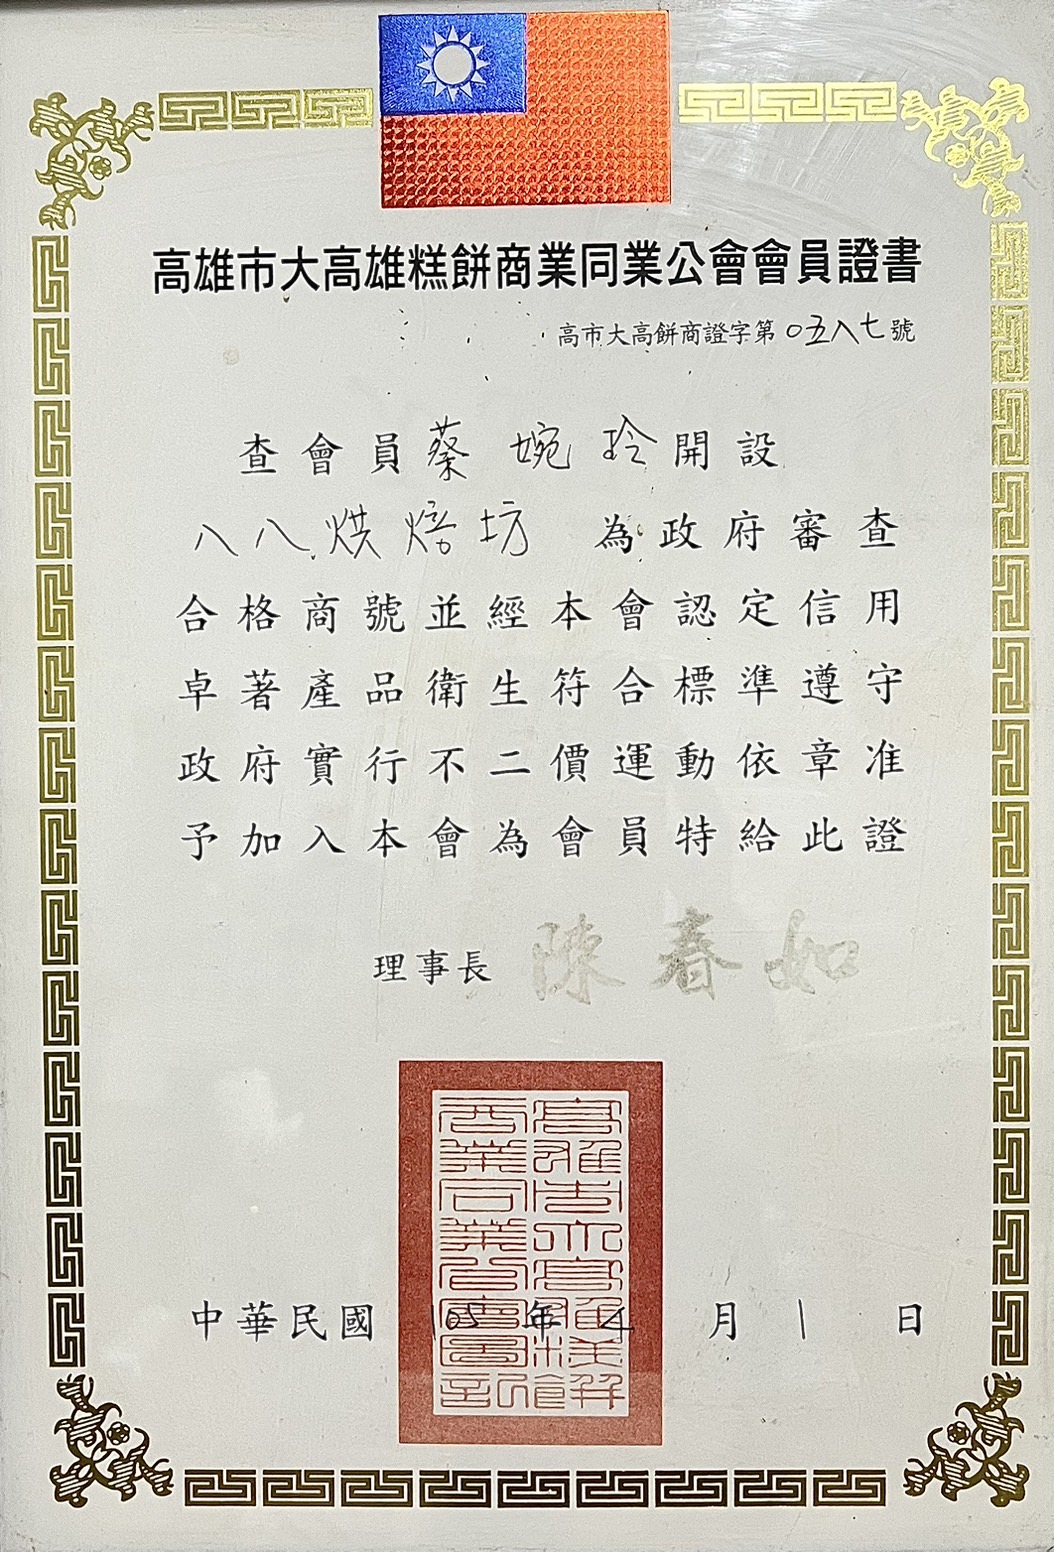 高雄市大高雄糕餅商業同業公會會員證書
高市大高餅商證字第〇五八七號
查會員蔡婉玲開設
八八烘焙坊 為政府審查
合格商號並經本會認定信用
卓著產品衛生符合標準遵守
政府實行不二價運動依章准
予加入本會為會員特給此證
理事長 陳春如
中華民國 105 年 4 月 1 日